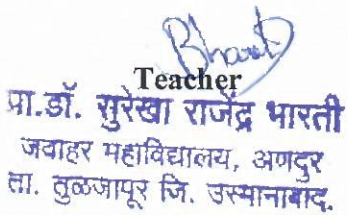 Bharati
Teacher
प्रा.डॉ. सुरेखा राजेंद्र भारती
जवाहर महाविद्यालय, अणदुर
ता. तुळजापूर जि. उस्मानाबाद.